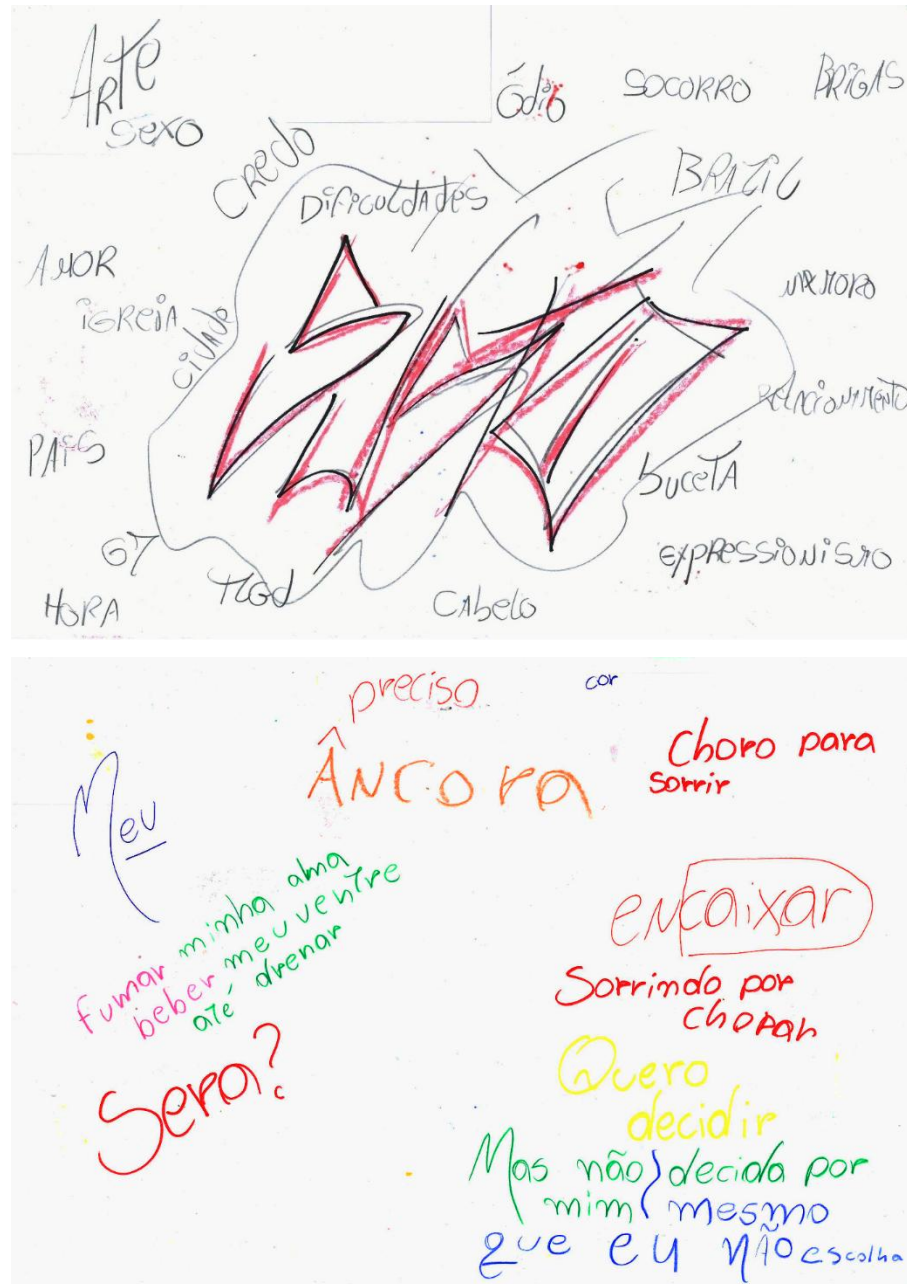 ARTE
Sexo
Ódio
SOCORRO
BRIGAS
Credo
Dificuldades
BRAZIL
AMOR
iGReiA
CidAde
NAMORO
RelAcionAMeNTO
PAiS
buceTA
expRessioNiSMO
HORA
CAbelo
preciso
cor
ÂNCOra
Choro para
sorrir
Meu
fumar minha alma
beber meu ventre
até drenar
eNcaixar
Sorrindo por
choRaR
Sera?
Quero
decidir
Mas não decida por
mim mesmo
que eu NÃO escolha